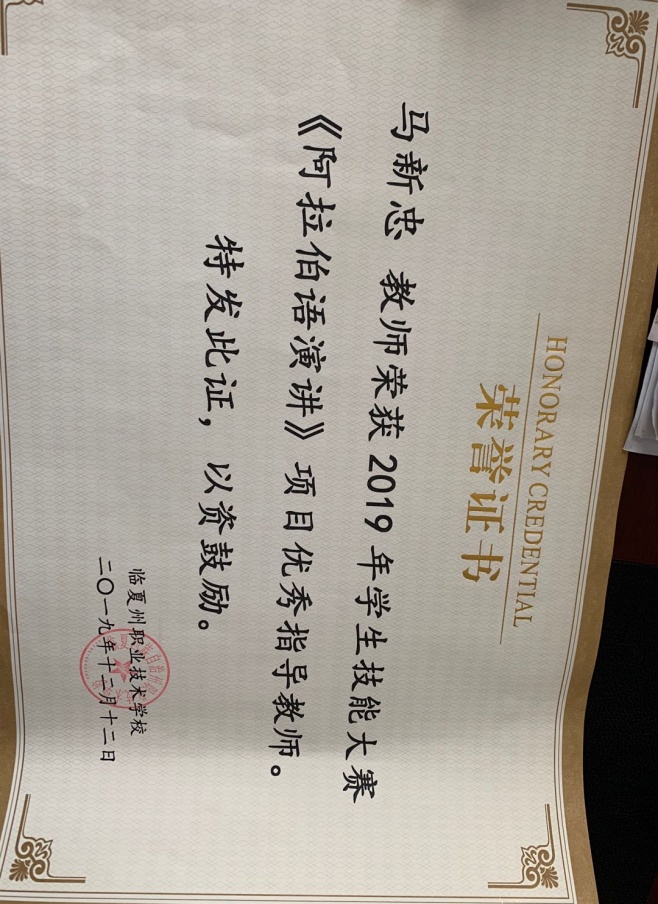 HONORARY CREDENTIAL
荣誉证书
马新忠 教师荣获2019年学生技能大赛
《阿拉伯语演讲》项目优秀指导教师。
特发此证，以资鼓励。
临夏州职业技术学校
二〇一九年十二月十二日